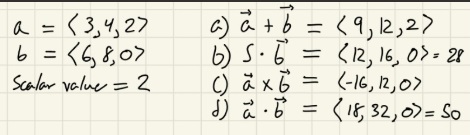 a = ⟨3,4,2⟩
b = ⟨6,8,0⟩
Scalar value = 2
a) a⃗ + b⃗ = ⟨9,12,2⟩
b) S · b⃗ = ⟨12, 16, 0⟩ = 28
c) a⃗ × b⃗ = ⟨-16, 12, 0⟩
d) a⃗ · b⃗ = ⟨18, 32, 0⟩ = 50